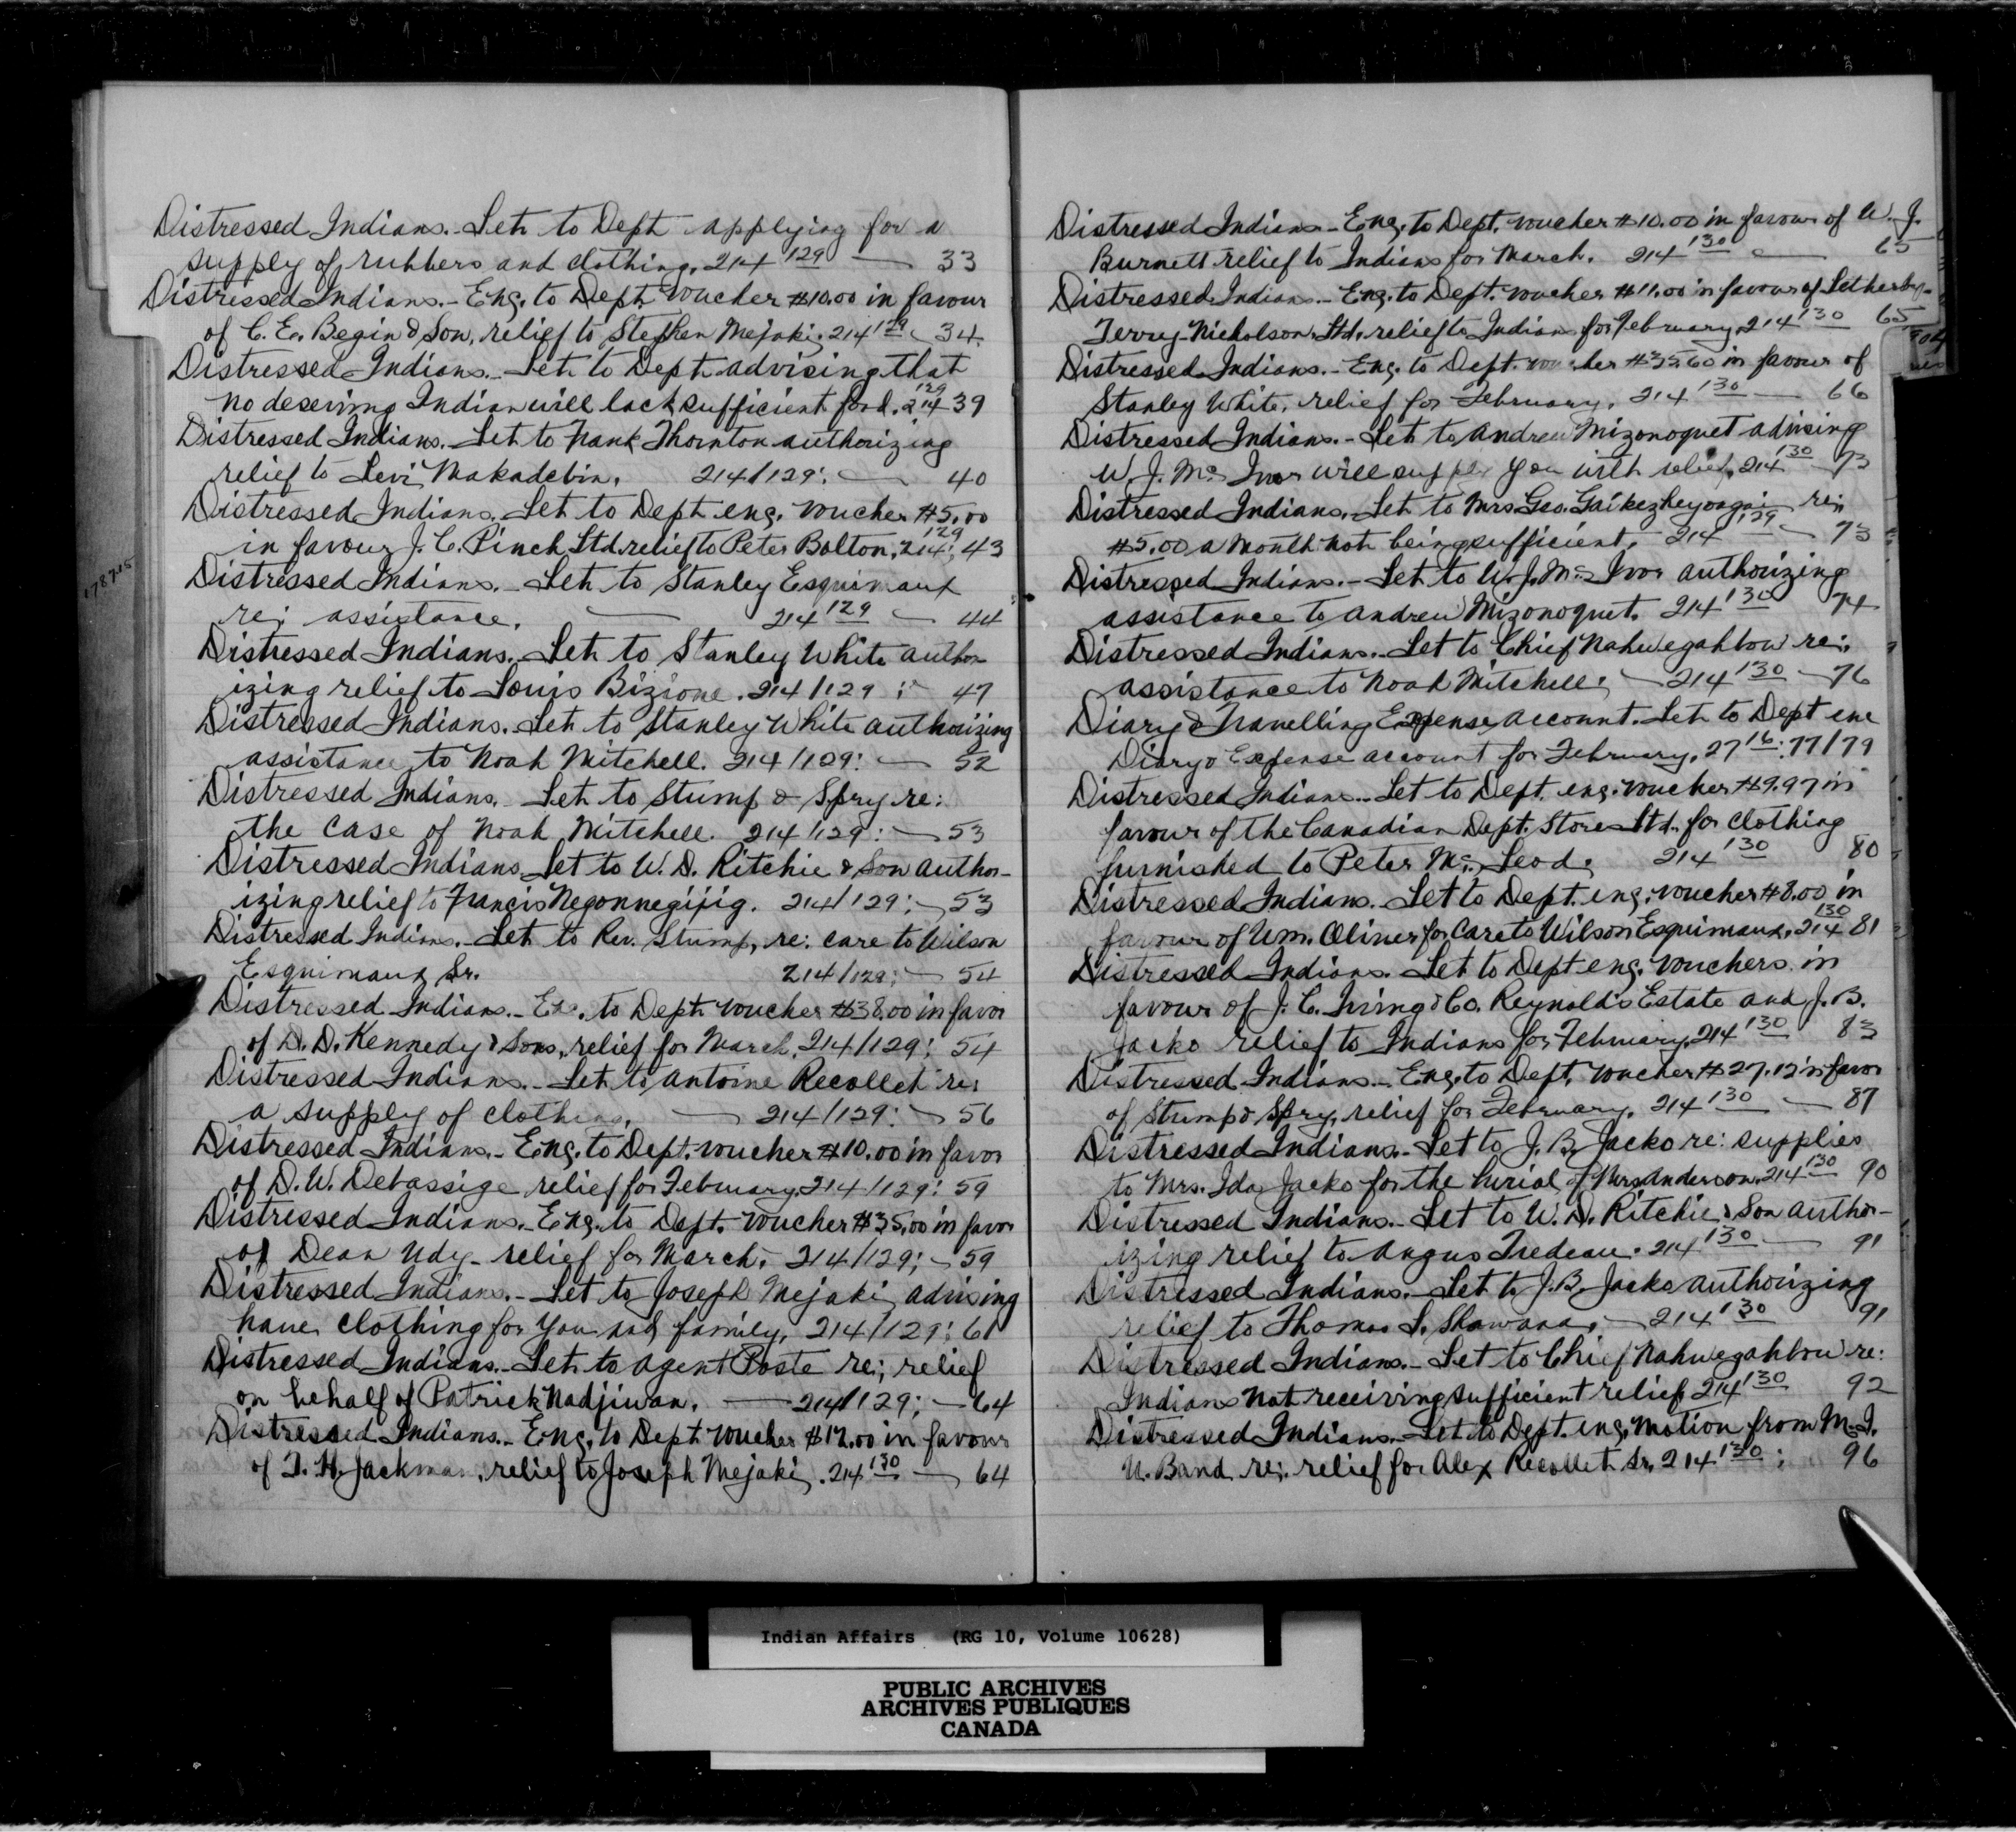 Distressed Indians.- Let. to Dept. applying for a
supply of rubbers and clothing. 214 129 — 33
Distressed Indians.- Eng. to Dept. voucher $10.00 in favour
of C. E. Begin & Son, relief to Stephen Mejaki. 214 129 — 34.
Distressed Indians.- Let. to Dept. advising that
no deserving Indian will lack sufficient food. 214 129 39
Distressed Indians. Let. to Frank Thornton authorizing
relief to Levi Makadebin. 214/129: — 40
Distressed Indians. Let. to Dept. eng. voucher $5.00
in favour J. C. Pinch Ltd. relief to Peter Bolton, 214 129; 43
Distressed Indians.- Let. to Stanley Esquimaux
re; assistance. — 214 129 — 44
Distressed Indians.- Let. to Stanley White author
izing relief to Louis Bizione. 214/129 : — 47
Distressed Indians. Let. to Stanley White authorizing
assistance to Noah Mitchell. 214/129: — 52
Distressed Indians. Let. to Stump & Spry re:
the case of Noah Mitchell. 214/129: — 53
Distressed Indians. Let to W. D. Ritchie & Son author-
izing relief to Francis Negonnegijig. 214/129; — 53
Distressed Indians.- Let. to Rev. Stump, re: care to Wilson
Esquimaux Sr. 214/129; — 54
Distressed Indians.- Enc. to Dept. voucher $38.00 in favor
of D. D. Kennedy & Sons, relief for March. 214/129; 54
Distressed Indians.- Let. to Antoine Recollet re;
a supply of clothing. — 214/129: — 56
Distressed Indians.- Eng. to Dept. voucher $10.00 in favor
of D. W. Debassige relief for February. 214/129: 59
Distressed Indians.- Eng. to Dept. voucher $35.00 in favor
of Dean Udy - relief for March. 214/129; — 59
Distressed Indians.- Let to Joseph Mejaki advising
have clothing for you and family. 214/129: 61
Distressed Indians.- Let. to Agent Poste re; relief
on behalf of Patrick Nadjiwan. — 214/129; — 64
Distressed Indians.- Eng. to Dept. voucher $17.00 in favour
of T. H. Jackman, relief to Joseph Mejaki. 214 130 — 64
17875
Distressed Indians - Eng. to Dept. voucher $10.00 in favour of W. J.
Burnett relief to Indians for March. 214 130 — 65
Distressed Indians.- Eng. to Dept. voucher $11.00 in favour of Letherby-
Terry-Nicholson Ltd. relief to Indians for February. 214 130 65
Distressed Indians.- Eng. to Dept. voucher $35.60 in favour of
Stanley White, relief for February. 214 130 — 66
Distressed Indians.- Let to Andrew Mizonoquet advising
W. J. McIvor will supply you with relief. 214 130 — 73
Distressed Indians.- Let to Mrs. Geo. re;
$5.00 a month not being sufficient. 214 129 — 73
Distressed Indians.- Let to W. J. McIvor authorizing
assistance to Andrew Mizonoquet. 214 130 74
Distressed Indians.- Let to Chief Nahwegahbow re;
assistance to Noah Mitchell; — 214 130 — 76
Diary & Travelling Expense Account. Let. to Dept enc
Diary & Expense account for February. 27 16: 77/79
Distressed Indians.- Let to Dept. eng. voucher $9.97 in
favour of the Canadian Dept. Store Ltd. for clothing
furnished to Peter McLeod. 214 130 80
Distressed Indians. Let to Dept. eng. voucher $8.00 in
favour of Wm. Oliver for care to Wilson Esquimaux. 214 130 81
Distressed Indians. Let to Dept. eng. vouchers in
favour of J. C. Irving & Co. Reynold's Estate and J. B.
Jacko relief to Indians for February. 214 130 83
Distressed Indians.- Eng. to Dept. voucher $27.12 in favor
of Stump & Spry, relief for February. 214 130 — 87
Distressed Indians.- Let to J. B. Jacko re: supplies
to Mrs. Ida Jacko for the burial of Mrs Anderson. 214 130 90
Distressed Indians.- Let to W. D. Ritchie & Son author-
izing relief to Angus Trudeau. 214 130 — 91
Distressed Indians.- Let to J. B. Jacko authorizing
relief to Thomas S. Shawana. — 214 130 91
Distressed Indians.- Let to Chief Nahwegahbow re:
Indians not receiving sufficient relief. 214 130 92
Distressed Indians.- Let to Dept. eng. motion from M. I.
U. Band re; relief for Alex Recollet Sr. 214 130; 96
Indian Affairs (RG 10, Volume 10628)
PUBLIC ARCHIVES
ARCHIVES PUBLIQUES
CANADA